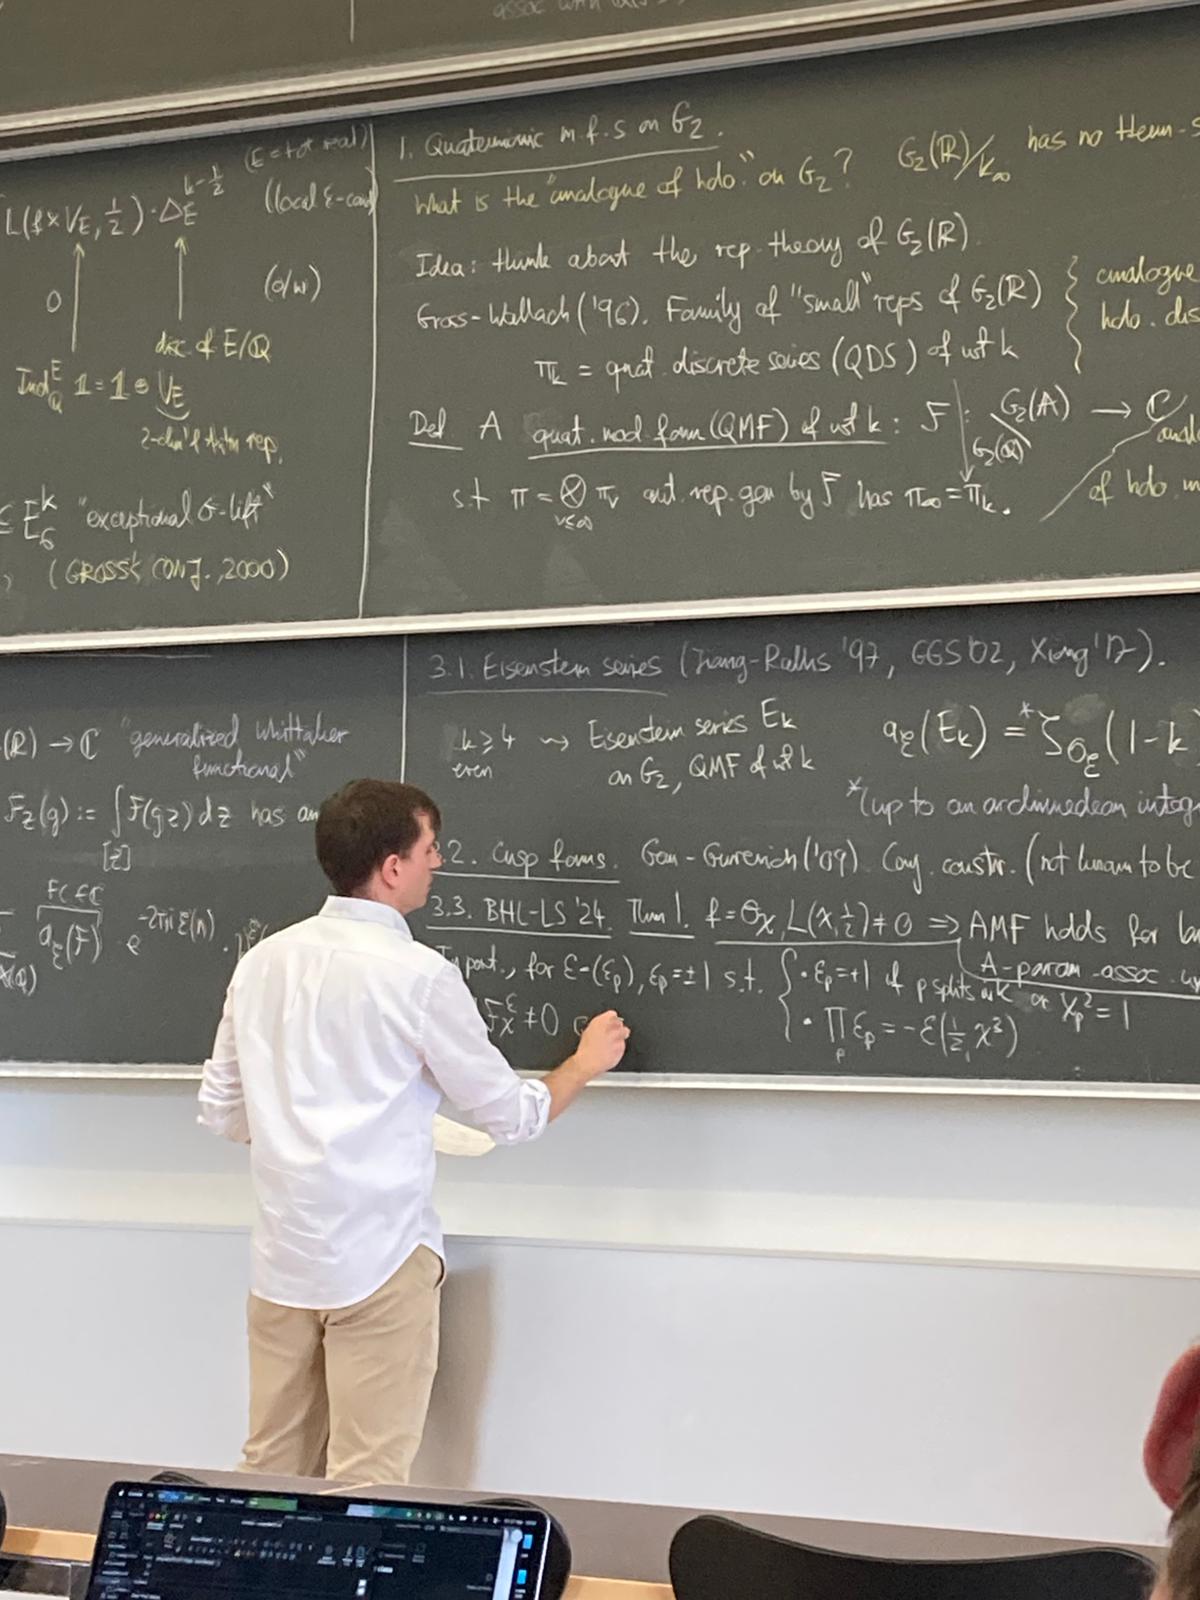 assoc with
(E = tot real)
L(f × V_E, ½) · Δ_E^{k-½} (local ε-cond
0 (o/w)
disc. of E/Q
Ind_Q^E 1 = 1 ⊕ V_E
2-dim'l Artin rep.
E_6^k "exceptional θ-lift"
(GROSS'S CONJ., 2000)
1. Quaternionic m.f.s on G_2.
What is the "analogue of holo." on G_2? G_2(ℝ)/K_∞ has no Herm-s
Idea: think about the rep. theory of G_2(ℝ).
Gross-Wallach ('96). Family of "small" reps of G_2(ℝ)
π_k = quat. discrete series (QDS) of wt k
} analogue
holo. dis
Def A quat. mod. form (QMF) of wt k: F: G_2(Q)\G_2(A) → ℂ
s.t π = ⊗_{v≤∞} π_v aut. rep. gen by F has π_∞ = π_k.
of holo. m
(ℝ) → ℂ "generalized Whittaker
functional"
F_Z(g) := ∫_{[Z]} F(gz) dz has an
FC f ∈
a_ε(F) · e^{-2πi ε(n)} ·
3.1. Eisenstein series (Jiang-Rallis '97, GGS'02, Xiong'17).
k ≥ 4 ⇝ Eisenstein series E_k
even on G_2, QMF of wt k
a_ε(E_k) =* ζ_{O_ε}(1-k
*(up to an archimedean integ
.2. Cusp forms. Gan-Gurevich ('09). Conj. constr. (not known to be
3.3. BHL-LS '24. Thm 1. f = θ_χ, L(χ, ½) ≠ 0 ⇒ AMF holds for
A-param. assoc. w
In part., for ε = (ε_p), ε_p = ±1 s.t. { • ε_p = +1 if p splits in k or χ_p² = 1
• ∏_p ε_p = -ε(½, χ³)
F_χ^ε ≠ 0